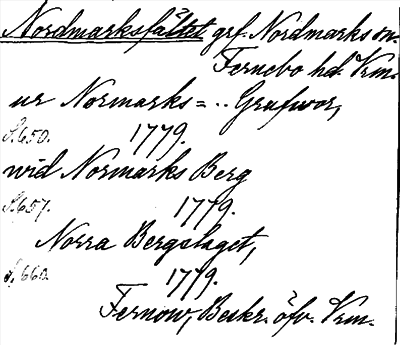 Nordmarksfältet grf. Nordmarks sn.
Fernebo hd. Vrm.
ur Normarks = .. Grufwor,
S. 650. 1779.
wid Normarks Berg
S. 657. 1779.
Norra Bergslaget,
S. 660. 1779.
Fernow, Beskr. öfv. Vrm.